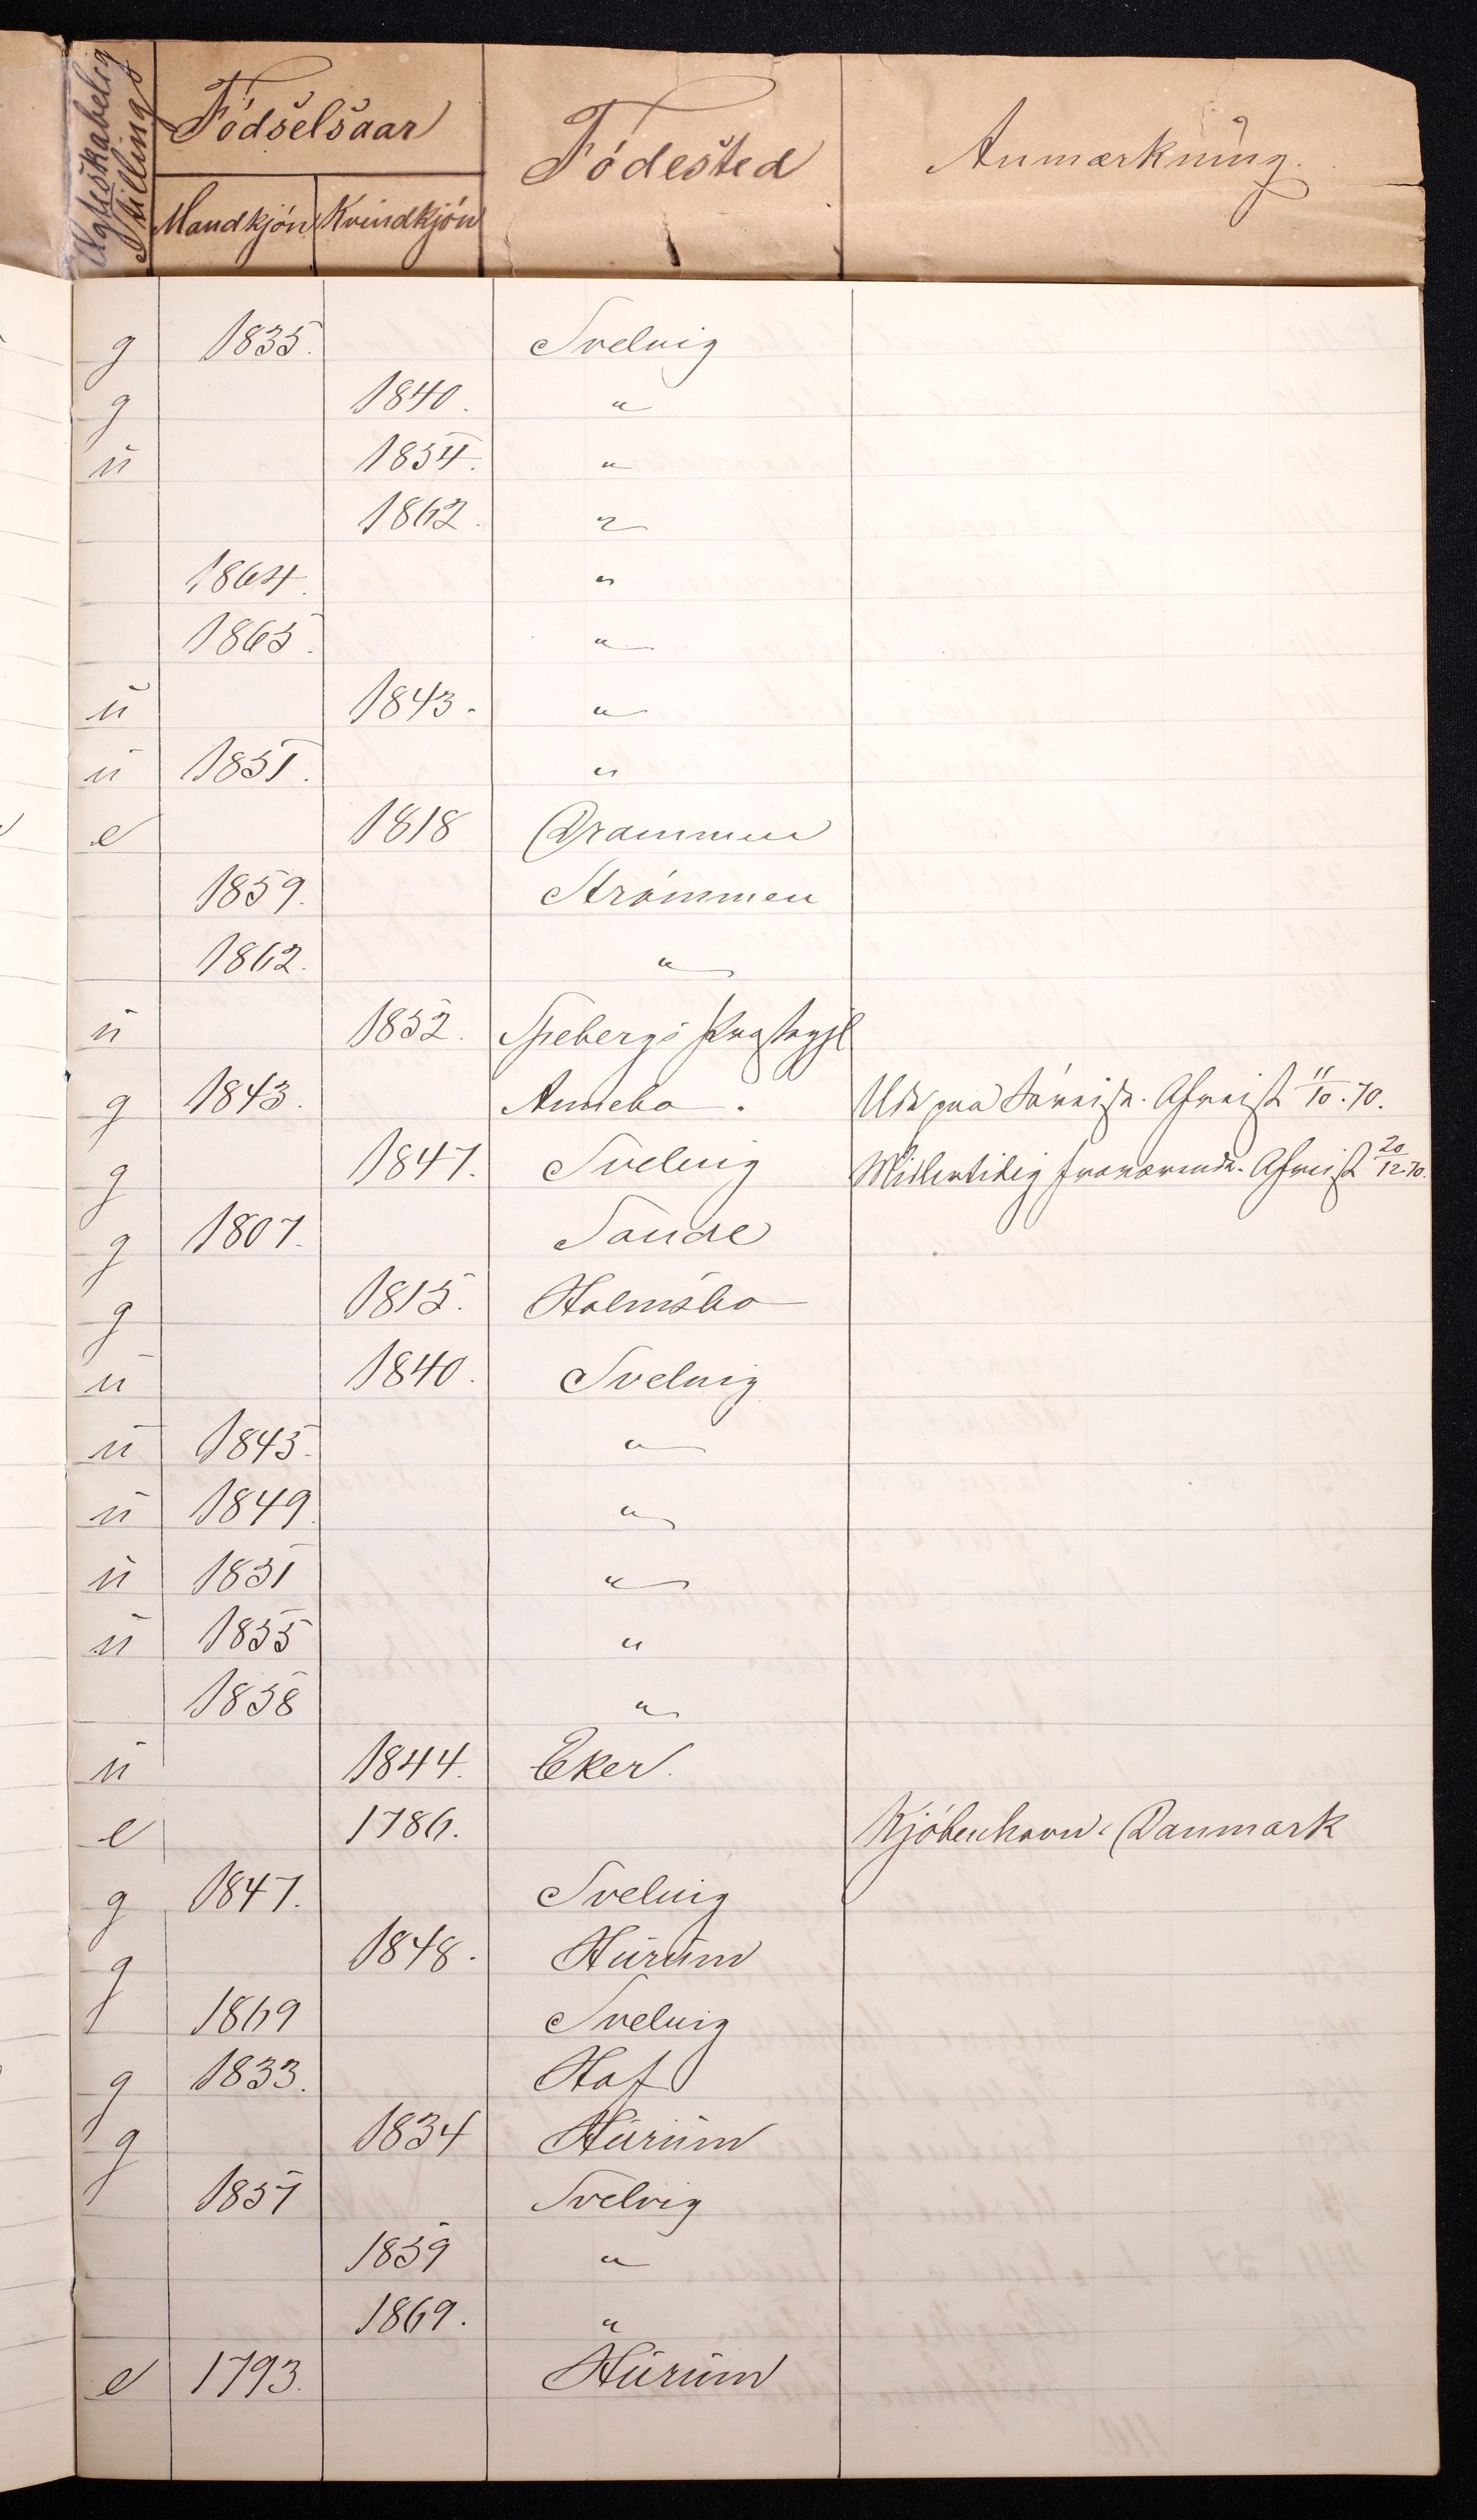 Ægteskabelig Stilling Fódselsaar Fódested Anmærkning.
Mandkjón Kvindkjón
g 1835. Svelvig
g 1840. "
u 1854. "
1862. "
1864. "
1865. "
u 1843. "
u 1851. "
e 1818 Drammen
1859. Strómmen
1862. "
u 1852.
g 1843. Annebo. Ude paa Sóreise. Afreist 11/10.70.
g 1847. Svelvig Midlertidig fraværende. Afreist 20/12.70.
g 1807. Sande
g 1815. Holmsbo
u 1840. Svelvig
u 1845. "
u 1849. "
u 1851 "
u 1855 "
1858 "
u 1844. Eker.
e 1786. Kjóbenhavn. Danmark
g 1847. Svelvig
g 1848. Hurum
1869 Svelvig
g 1833. Hof
g 1834 Hurum
1857 Svelvig
1859 "
1869. "
e 1793. Hurum